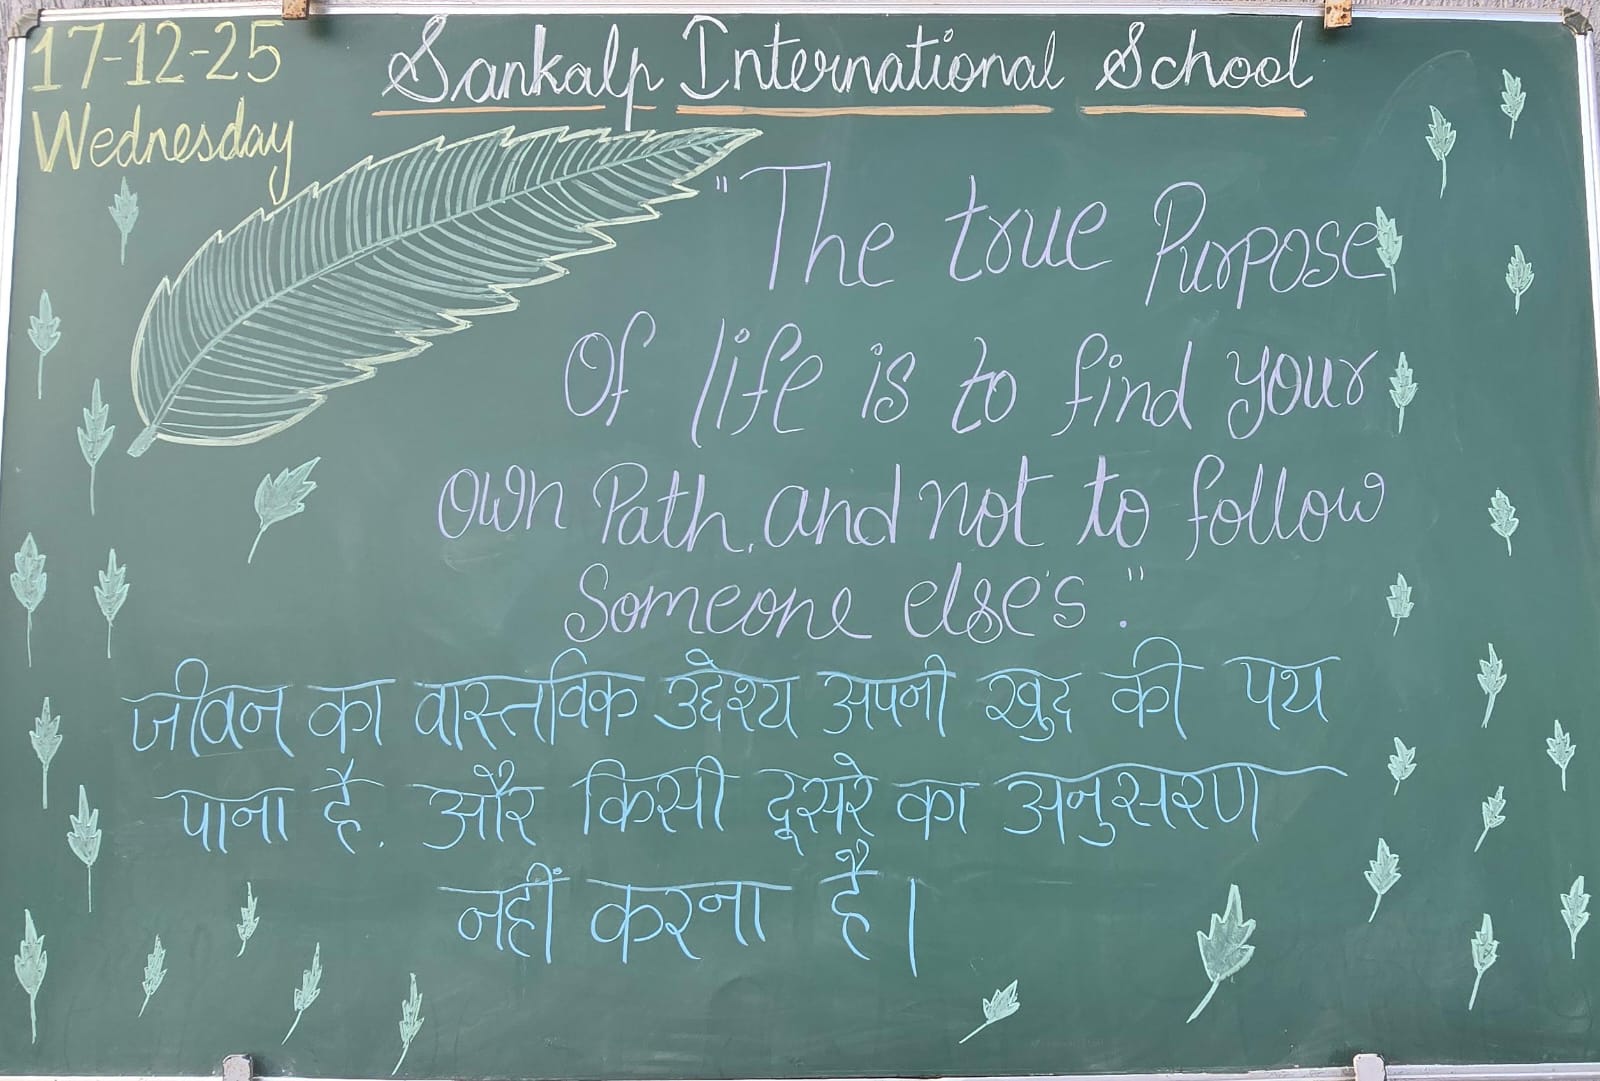 17-12-25
Wednesday
Sankalp International School
"The true Purpose
Of life is to find your
own Path, and not to follow
Someone else's."
जीवन का वास्तविक उद्देश्य अपनी खुद की पथ
पाना है. और किसी दूसरे का अनुसरण
नहीं करना है।